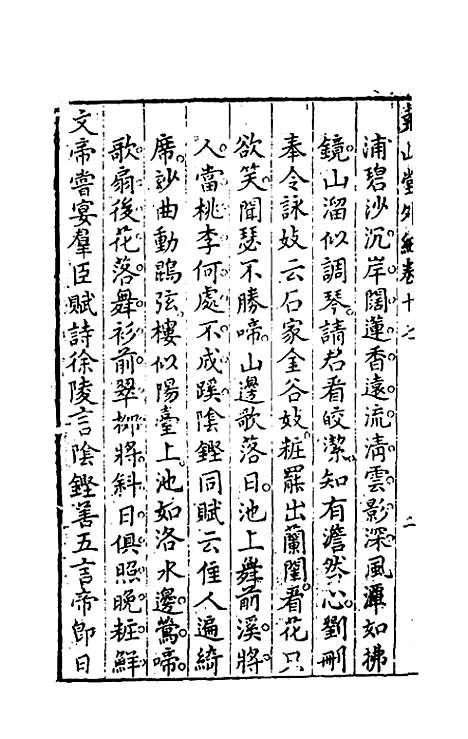 堯山堂外紀卷十七 二
浦碧沙沉岸闊蓮香遠流清雲影深風潭如拂
鏡山溜似調琴請君看皎潔知有澹然心劉刪
奉令詠妓云石家金谷妓粧罷出蘭閨看花只
欲笑聞瑟不勝啼山邊歌落日池上舞前溪將
人當桃李何處不成蹊陰鏗同賦云佳人遍綺
席妙曲動鵾弦樓似陽臺上池如洛水邊鶯啼
歌扇後花落舞衫前翠柳將斜日俱照晚粧鮮
文帝嘗宴羣臣賦詩徐陵言陰鏗善五言帝即日